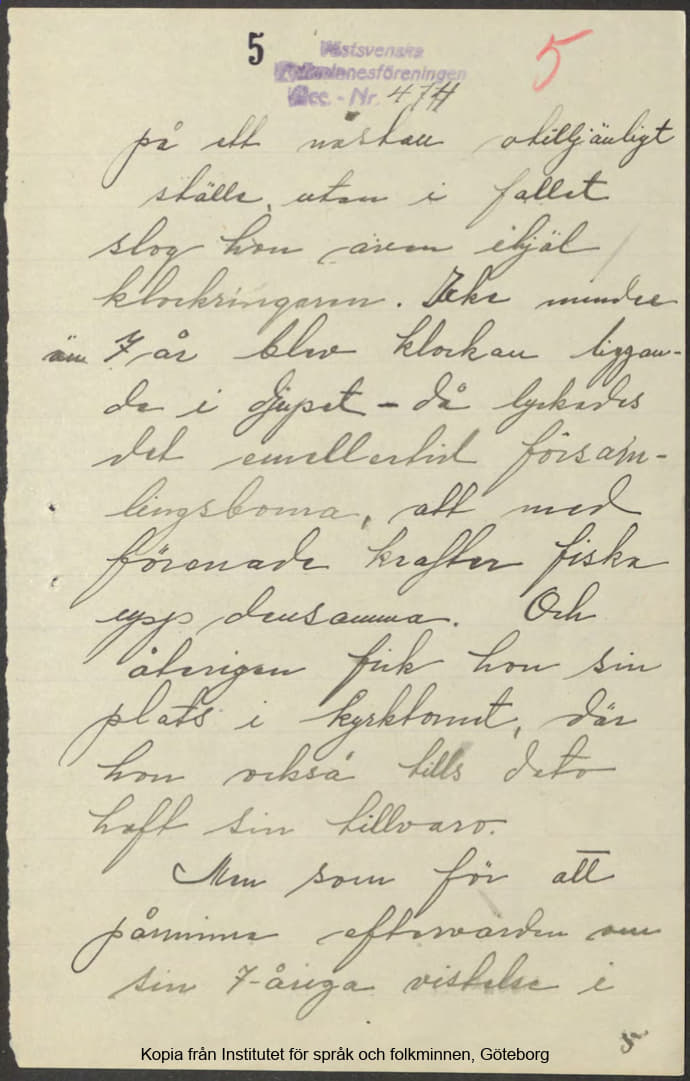 5
5
Västsvenska
Folkminnesföreningen
Acc. - Nr. 474
på ett nästan otilljänligt
ställe, utan i fallet
slog hon även ihjäl
klockringaren. Icke mindre
än 7 år blev klockan liggan-
de i djupet - då lyckades
det emellertid försam-
lingsborna, att med
förenade krafter fiska
upp densamma. Och
återigen fick hon sin
plats i kyrktornet, där
hon också tills dato
haft sin tillvaro.
Men som för att
påminna eftervärlden om
sin 7-åriga vistelse i
Kopia från Institutet för språk och folkminnen, Göteborg